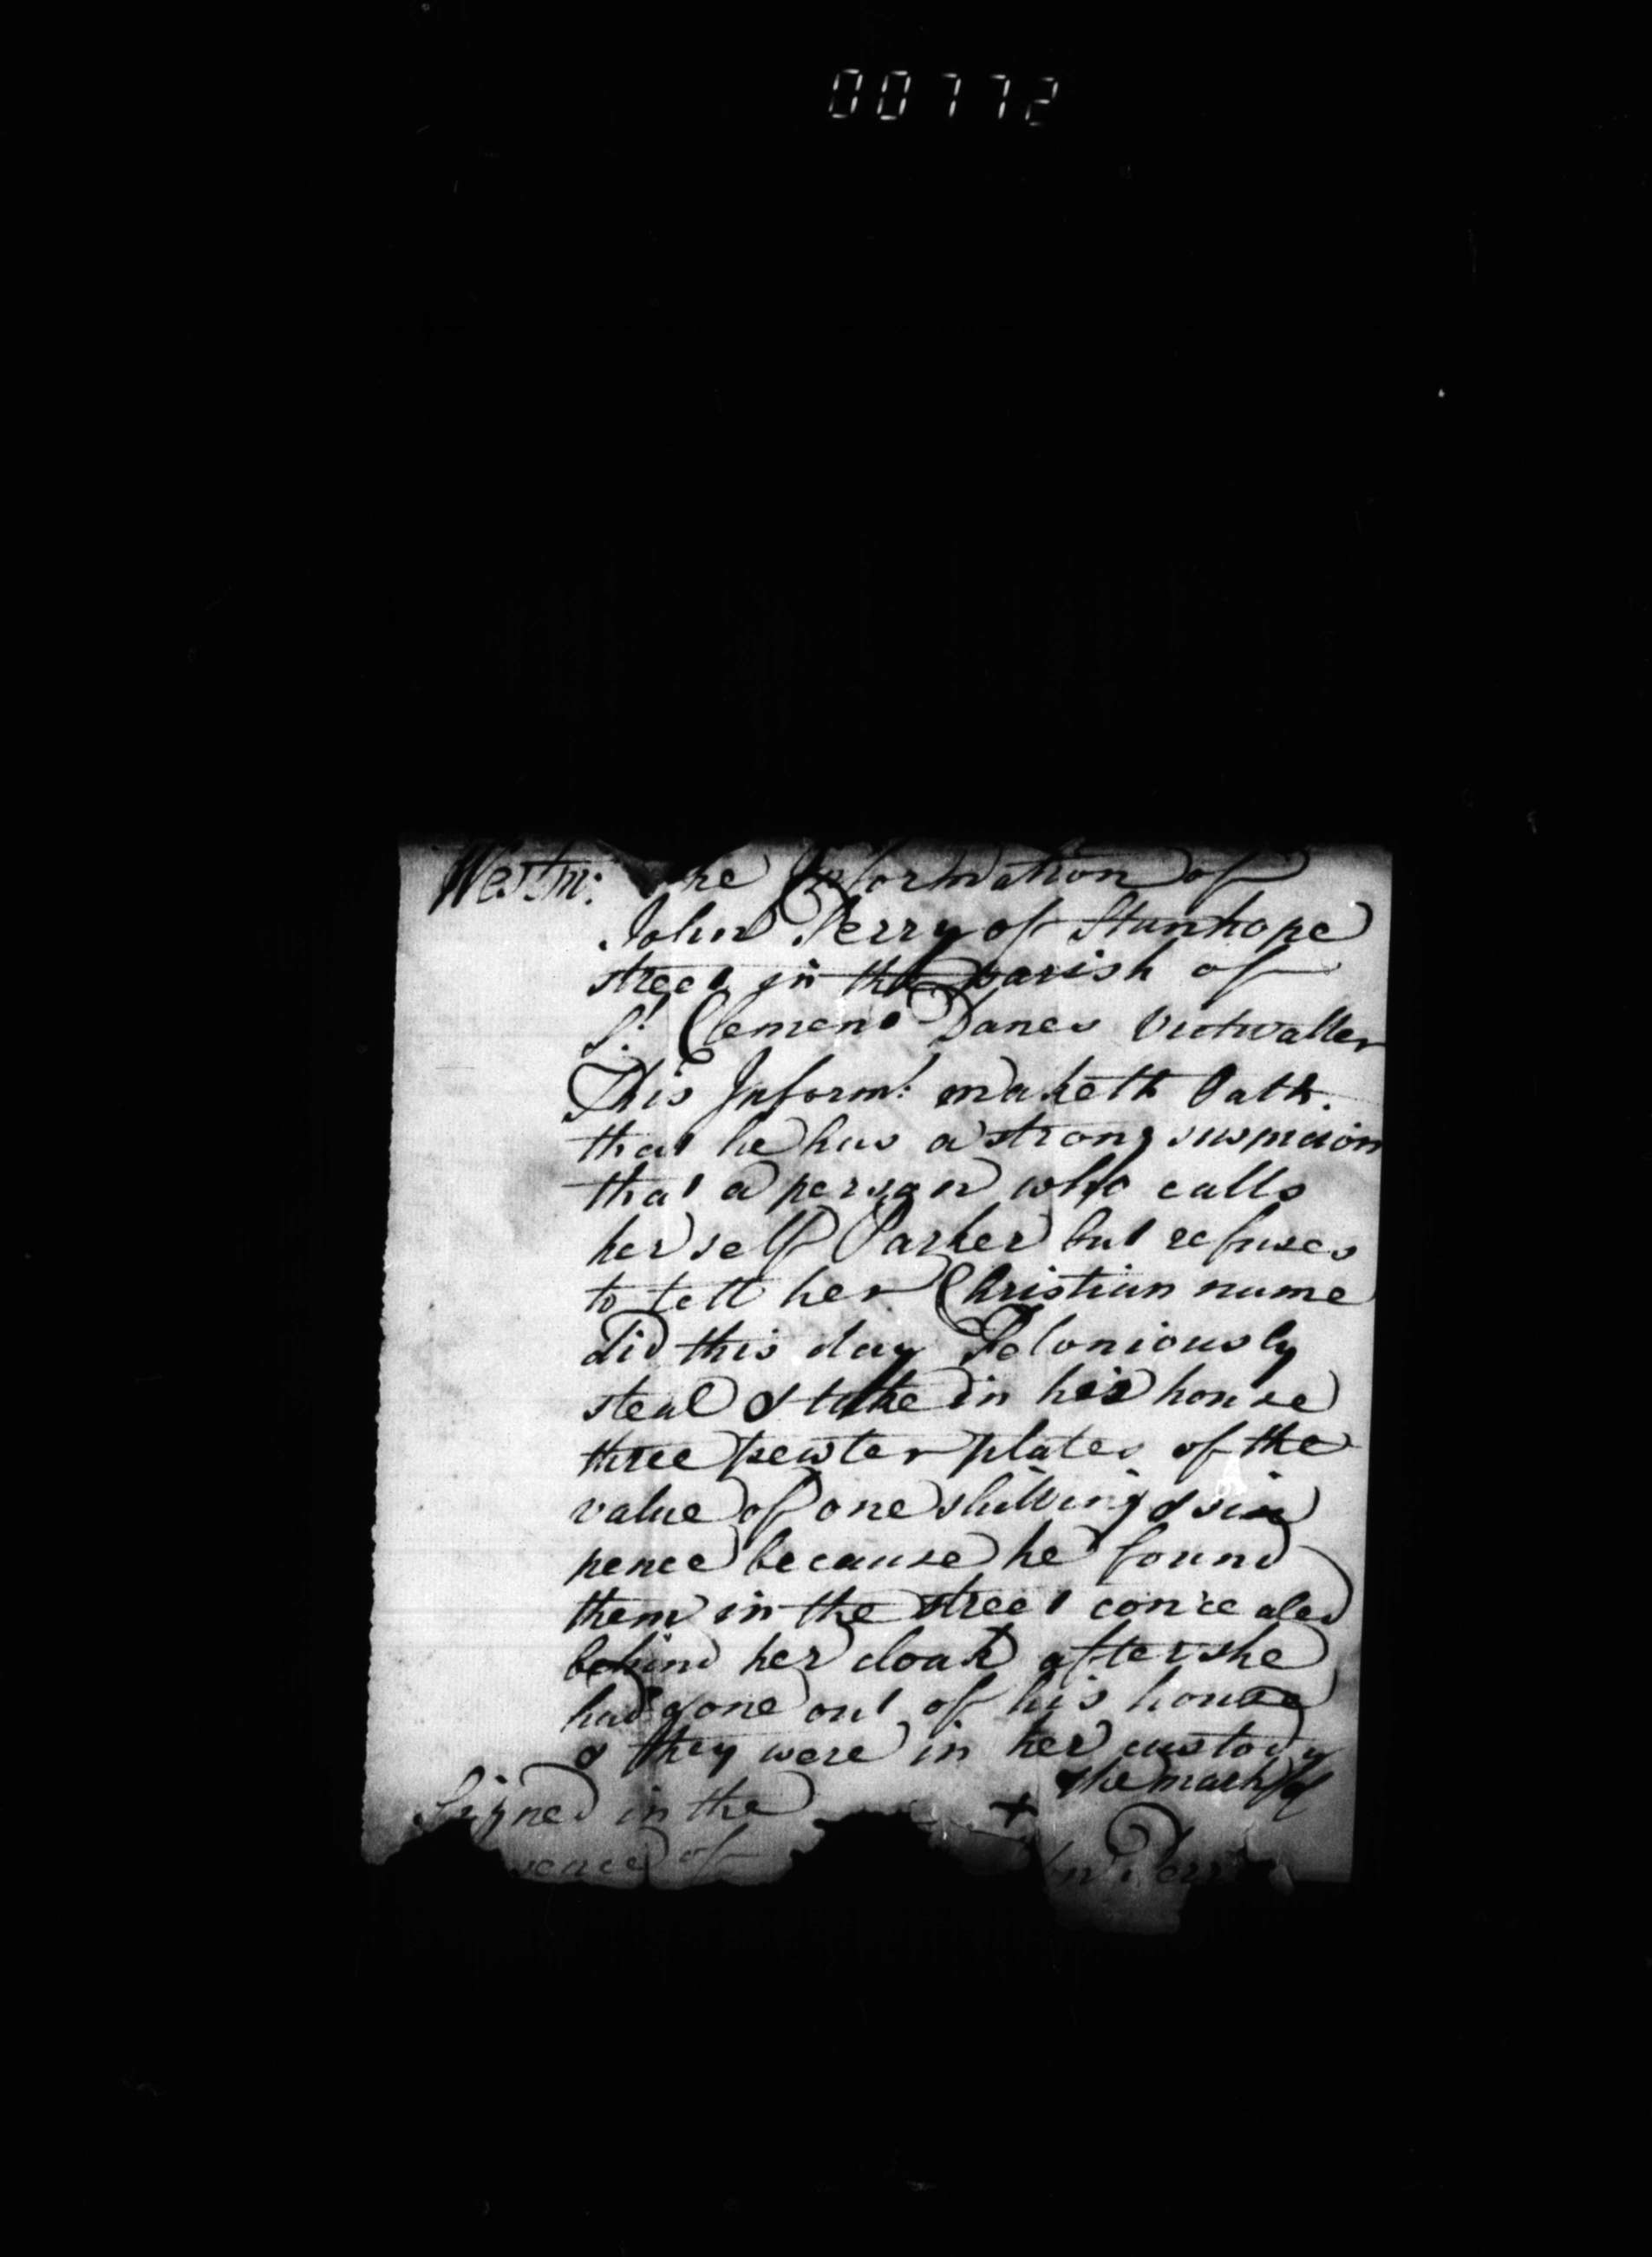 00772
Westm: he Information of
John Perry of Stanhope
street in the parish of
St. Clement Danes Victualler
This Informt. maketh Oath.
that he has a strong suspicion
that a person who calls
herself Parker but refuses
to tell her Christian name
did this day Feloniously
steal & take in his house
three pewter plates of the
value of one shilling & six
pence because he found
them in the street concealed
behind her cloak after she
had gone out of his house
& they were in her custody
Signed in the + the mark of
of Perry